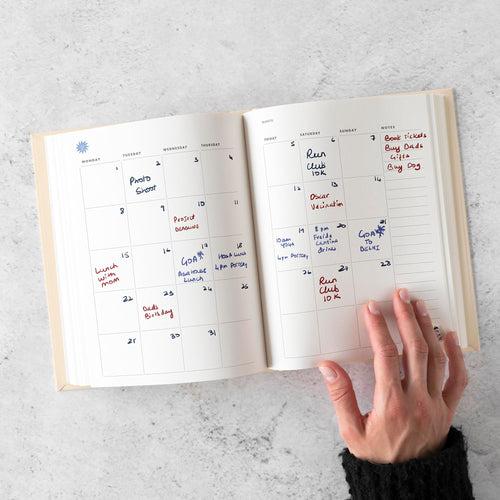 MONDAY TUESDAY WEDNESDAY THURSDAY
1 2 3 4
Photo
Shoot
8 9 10 11
Project
DEADLINE
15 16 17 18
Lunch
with
MOM
GOA
Lunch
4pm Pottery
22 23 24 25
Dad's
Birthday
30 31
FRIDAY SATURDAY SUNDAY NOTES
5 6 7
Run
Club
10K
Book tickets
Buy Dads
Gifts
Buy Dog
12 13 14
Oscar
Vaccination
19 20 21
10am
Yoga
4pm Pottery
8pm
Drinks
GOA
TO
DELHI
26 28
Run
Club
10K